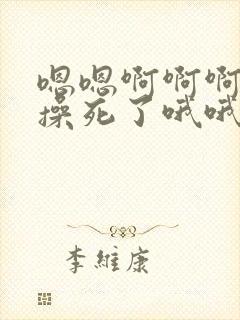 嗯嗯啊啊啊
操死了哦哦
李維康